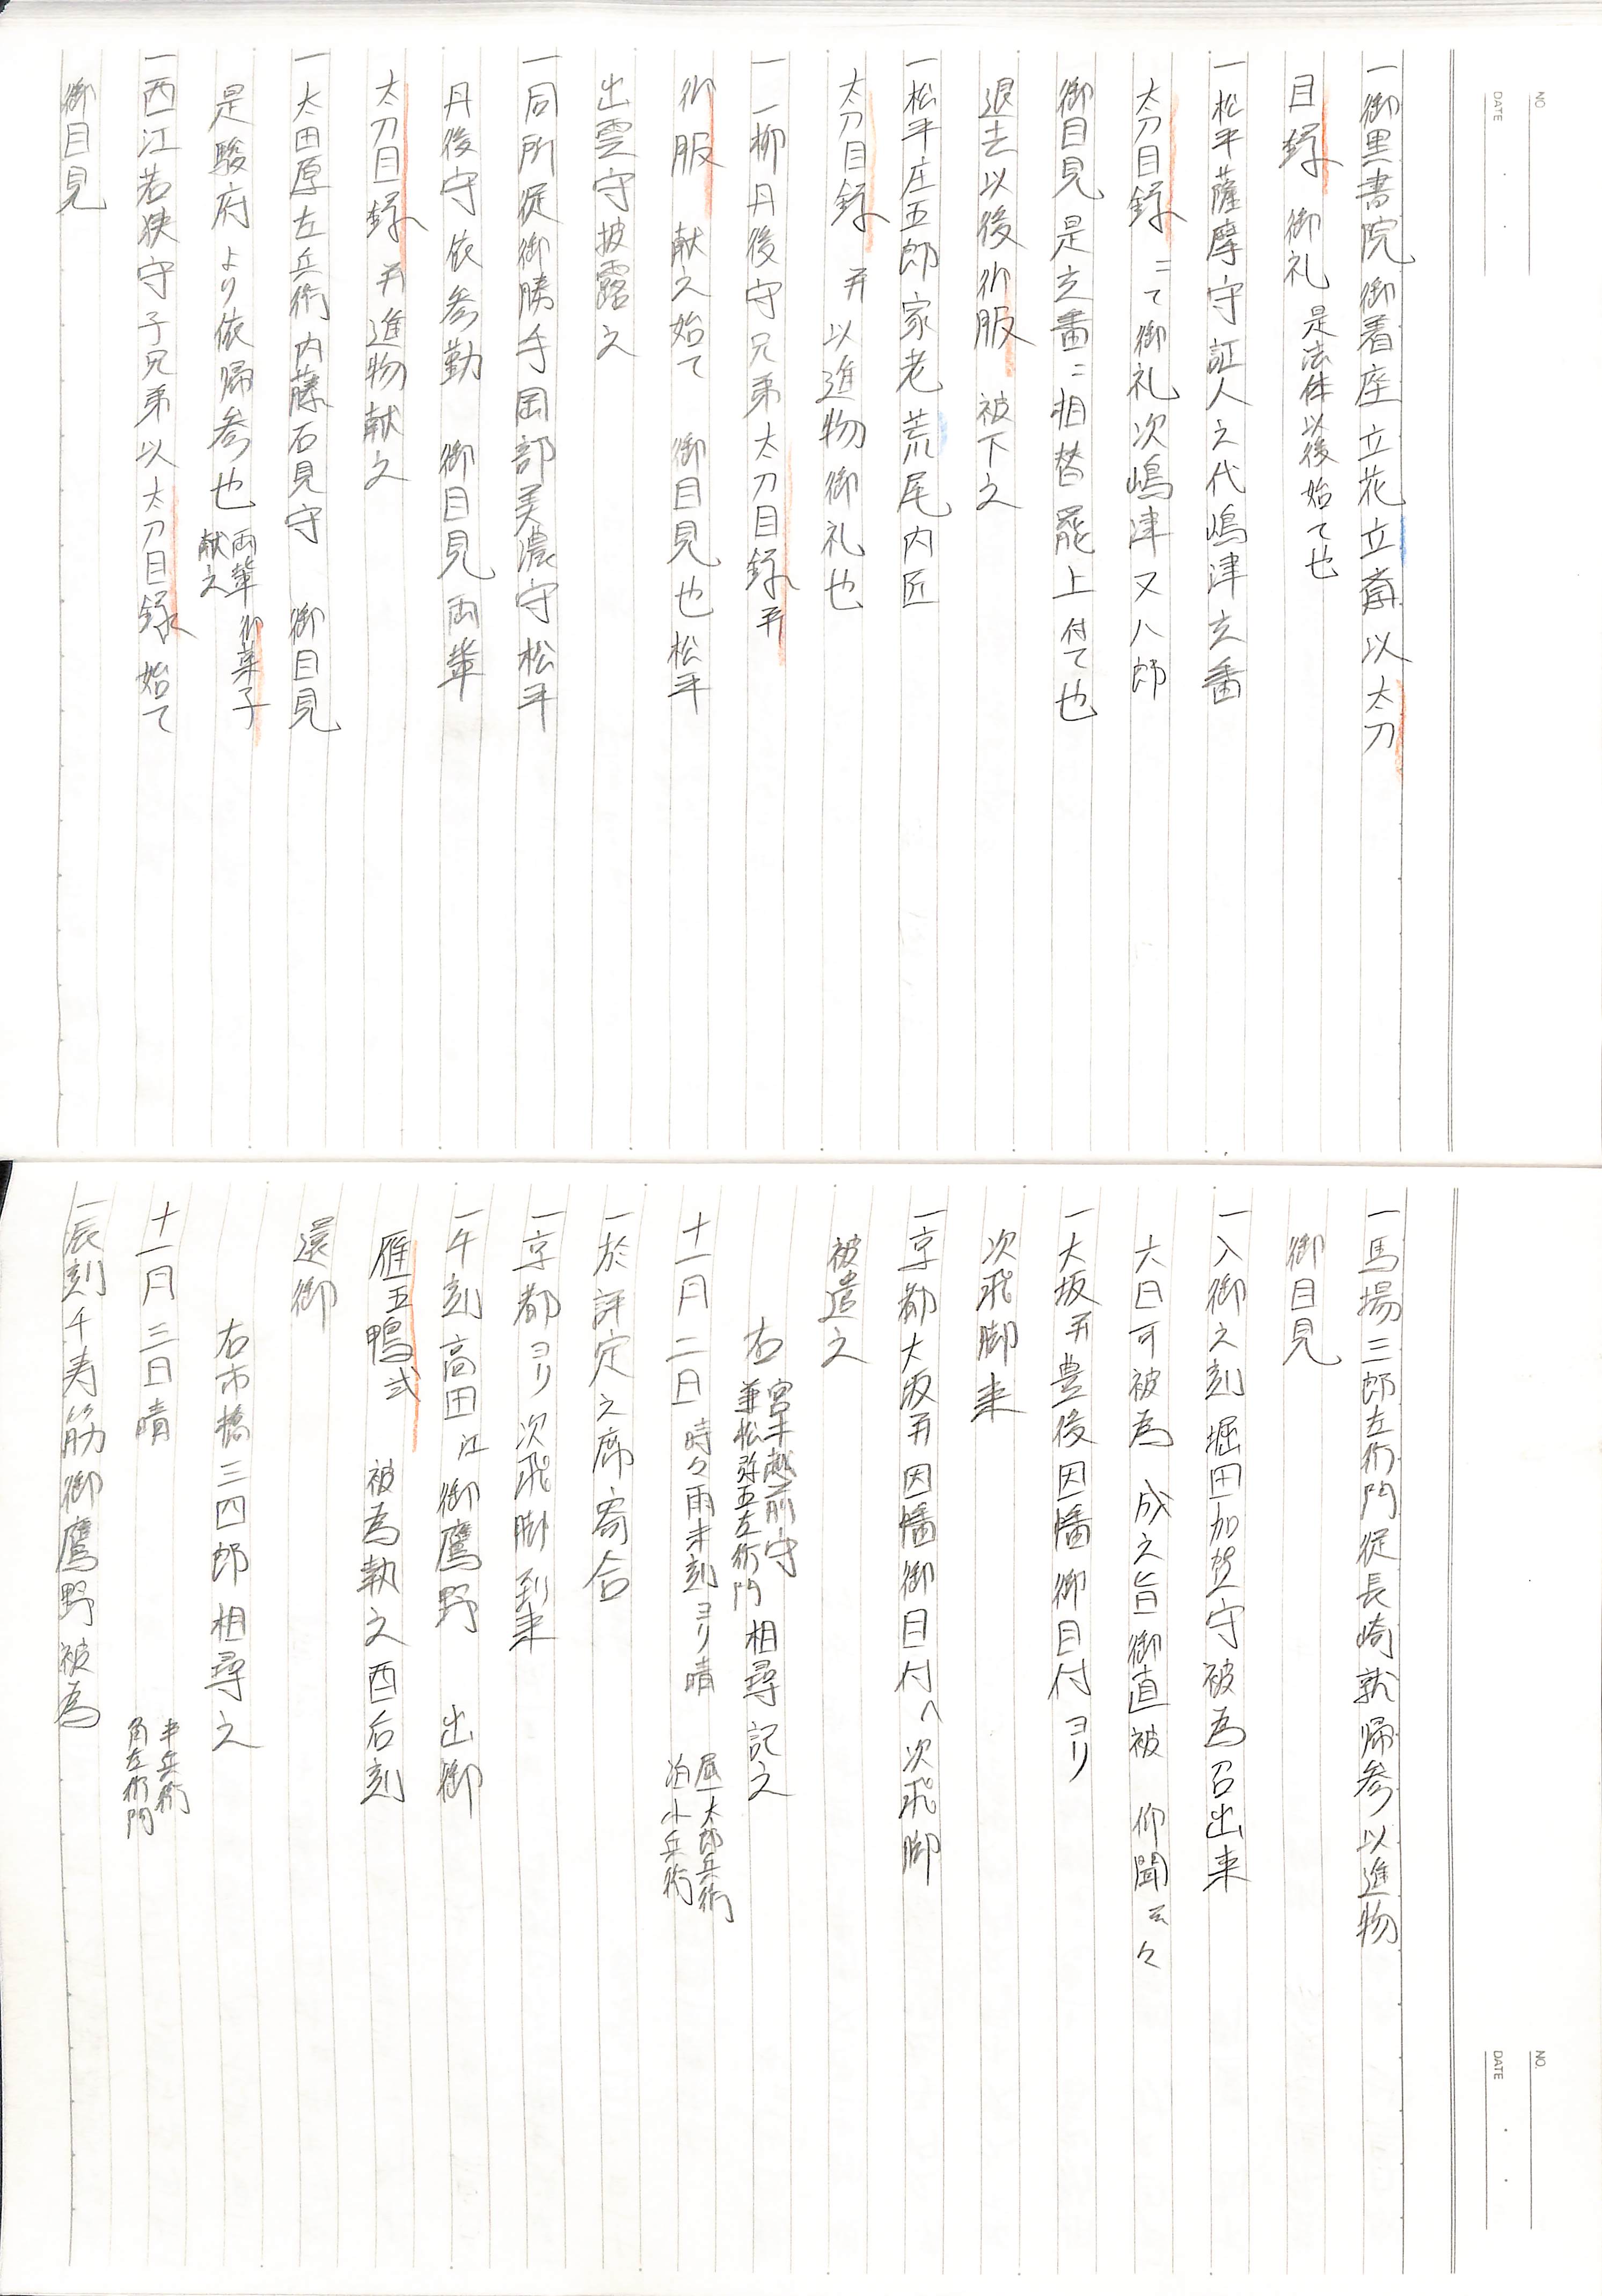 NO.
DATE
一御黒書院御着座立花立斎以太刀
目録 御礼 是法体以後始て也
一松平薩摩守証人之代嶋津玄番
太刀目録ニて御礼次嶋津又八郎
御目見是玄番ニ相替罷上付て也
退去以後御服 被下之
一松平庄五郎家老荒尾内匠
太刀目録 并以進物御礼也
一一柳丹後守兄弟太刀目録并
御服 献之始て 御目見也松平
出雲守披露之
一同所従御勝手岡部美濃守松平
丹後守依参勤 御目見両輩
太刀目録并進物献之
一太田原左兵衛内藤石見守 御目見
是駿府より依帰参也 両輩御菓子献之
一西江若狭守子兄弟以太刀目録始て
御目見
NO.
DATE
一馬場三郎左衛門従長崎就帰参以進物
御目見
一入御之刻堀田加賀守被為召出来
六日可被為 成之旨御直被 仰聞云々
一大坂并豊後因幡御目付ヨリ
次飛脚来
一京都大坂并因幡御目付へ次飛脚
被遣之
右 宮本越前守 兼松弥五左衛門 相尋記之
十一月二日 時々雨未刻ヨリ晴 屋一太郎兵衛 泊小兵衛
一於評定之席寄合
一京都ヨリ次飛脚到来
一午刻高田江御鷹野 出御
雁五鴨弐 被為執之酉后刻
還御
右市橋三四郎相尋之
十一月三日晴 半兵衛 角左衛門
一辰刻千寿筋御鷹野被為